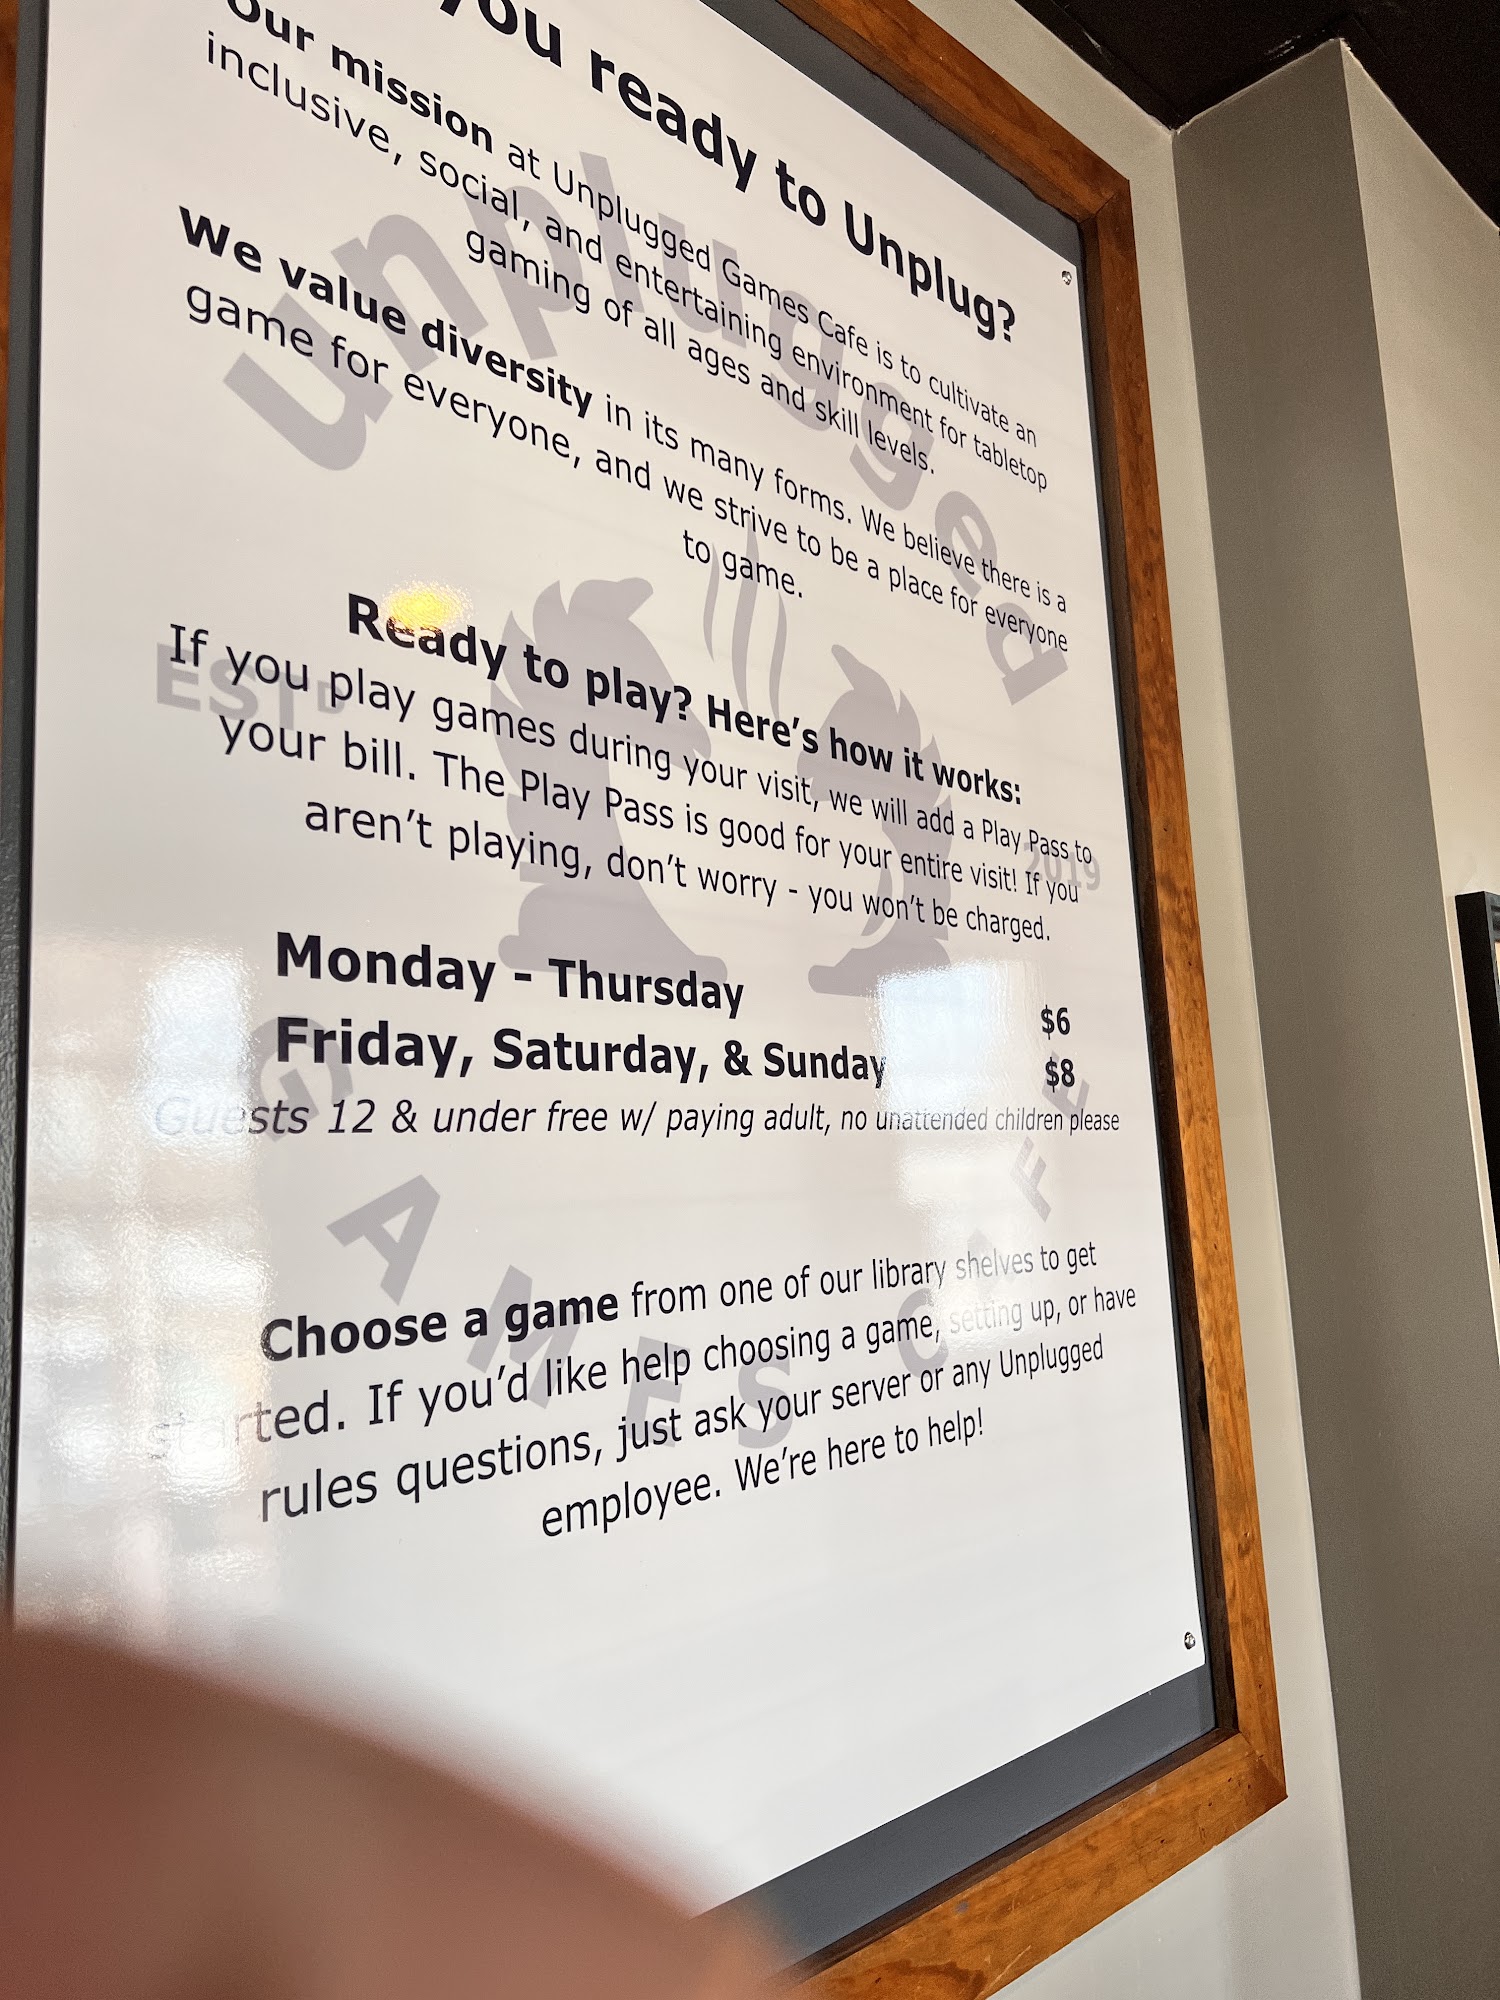 you ready to Unplug?
Our mission at Unplugged Games Cafe is to cultivate an
inclusive, social, and entertaining environment for tabletop
gaming of all ages and skill levels.
We value diversity in its many forms. We believe there is a
game for everyone, and we strive to be a place for everyone
to game.
Ready to play? Here's how it works:
If you play games during your visit, we will add a Play Pass to
your bill. The Play Pass is good for your entire visit! If you
aren't playing, don't worry - you won't be charged.
Monday - Thursday $6
Friday, Saturday, & Sunday $8
Guests 12 & under free w/ paying adult, no unattended children please
Choose a game from one of our library shelves to get
started. If you'd like help choosing a game, setting up, or have
rules questions, just ask your server or any Unplugged
employee. We're here to help!
unplugged
ESTD 2019
GAMES CAFE